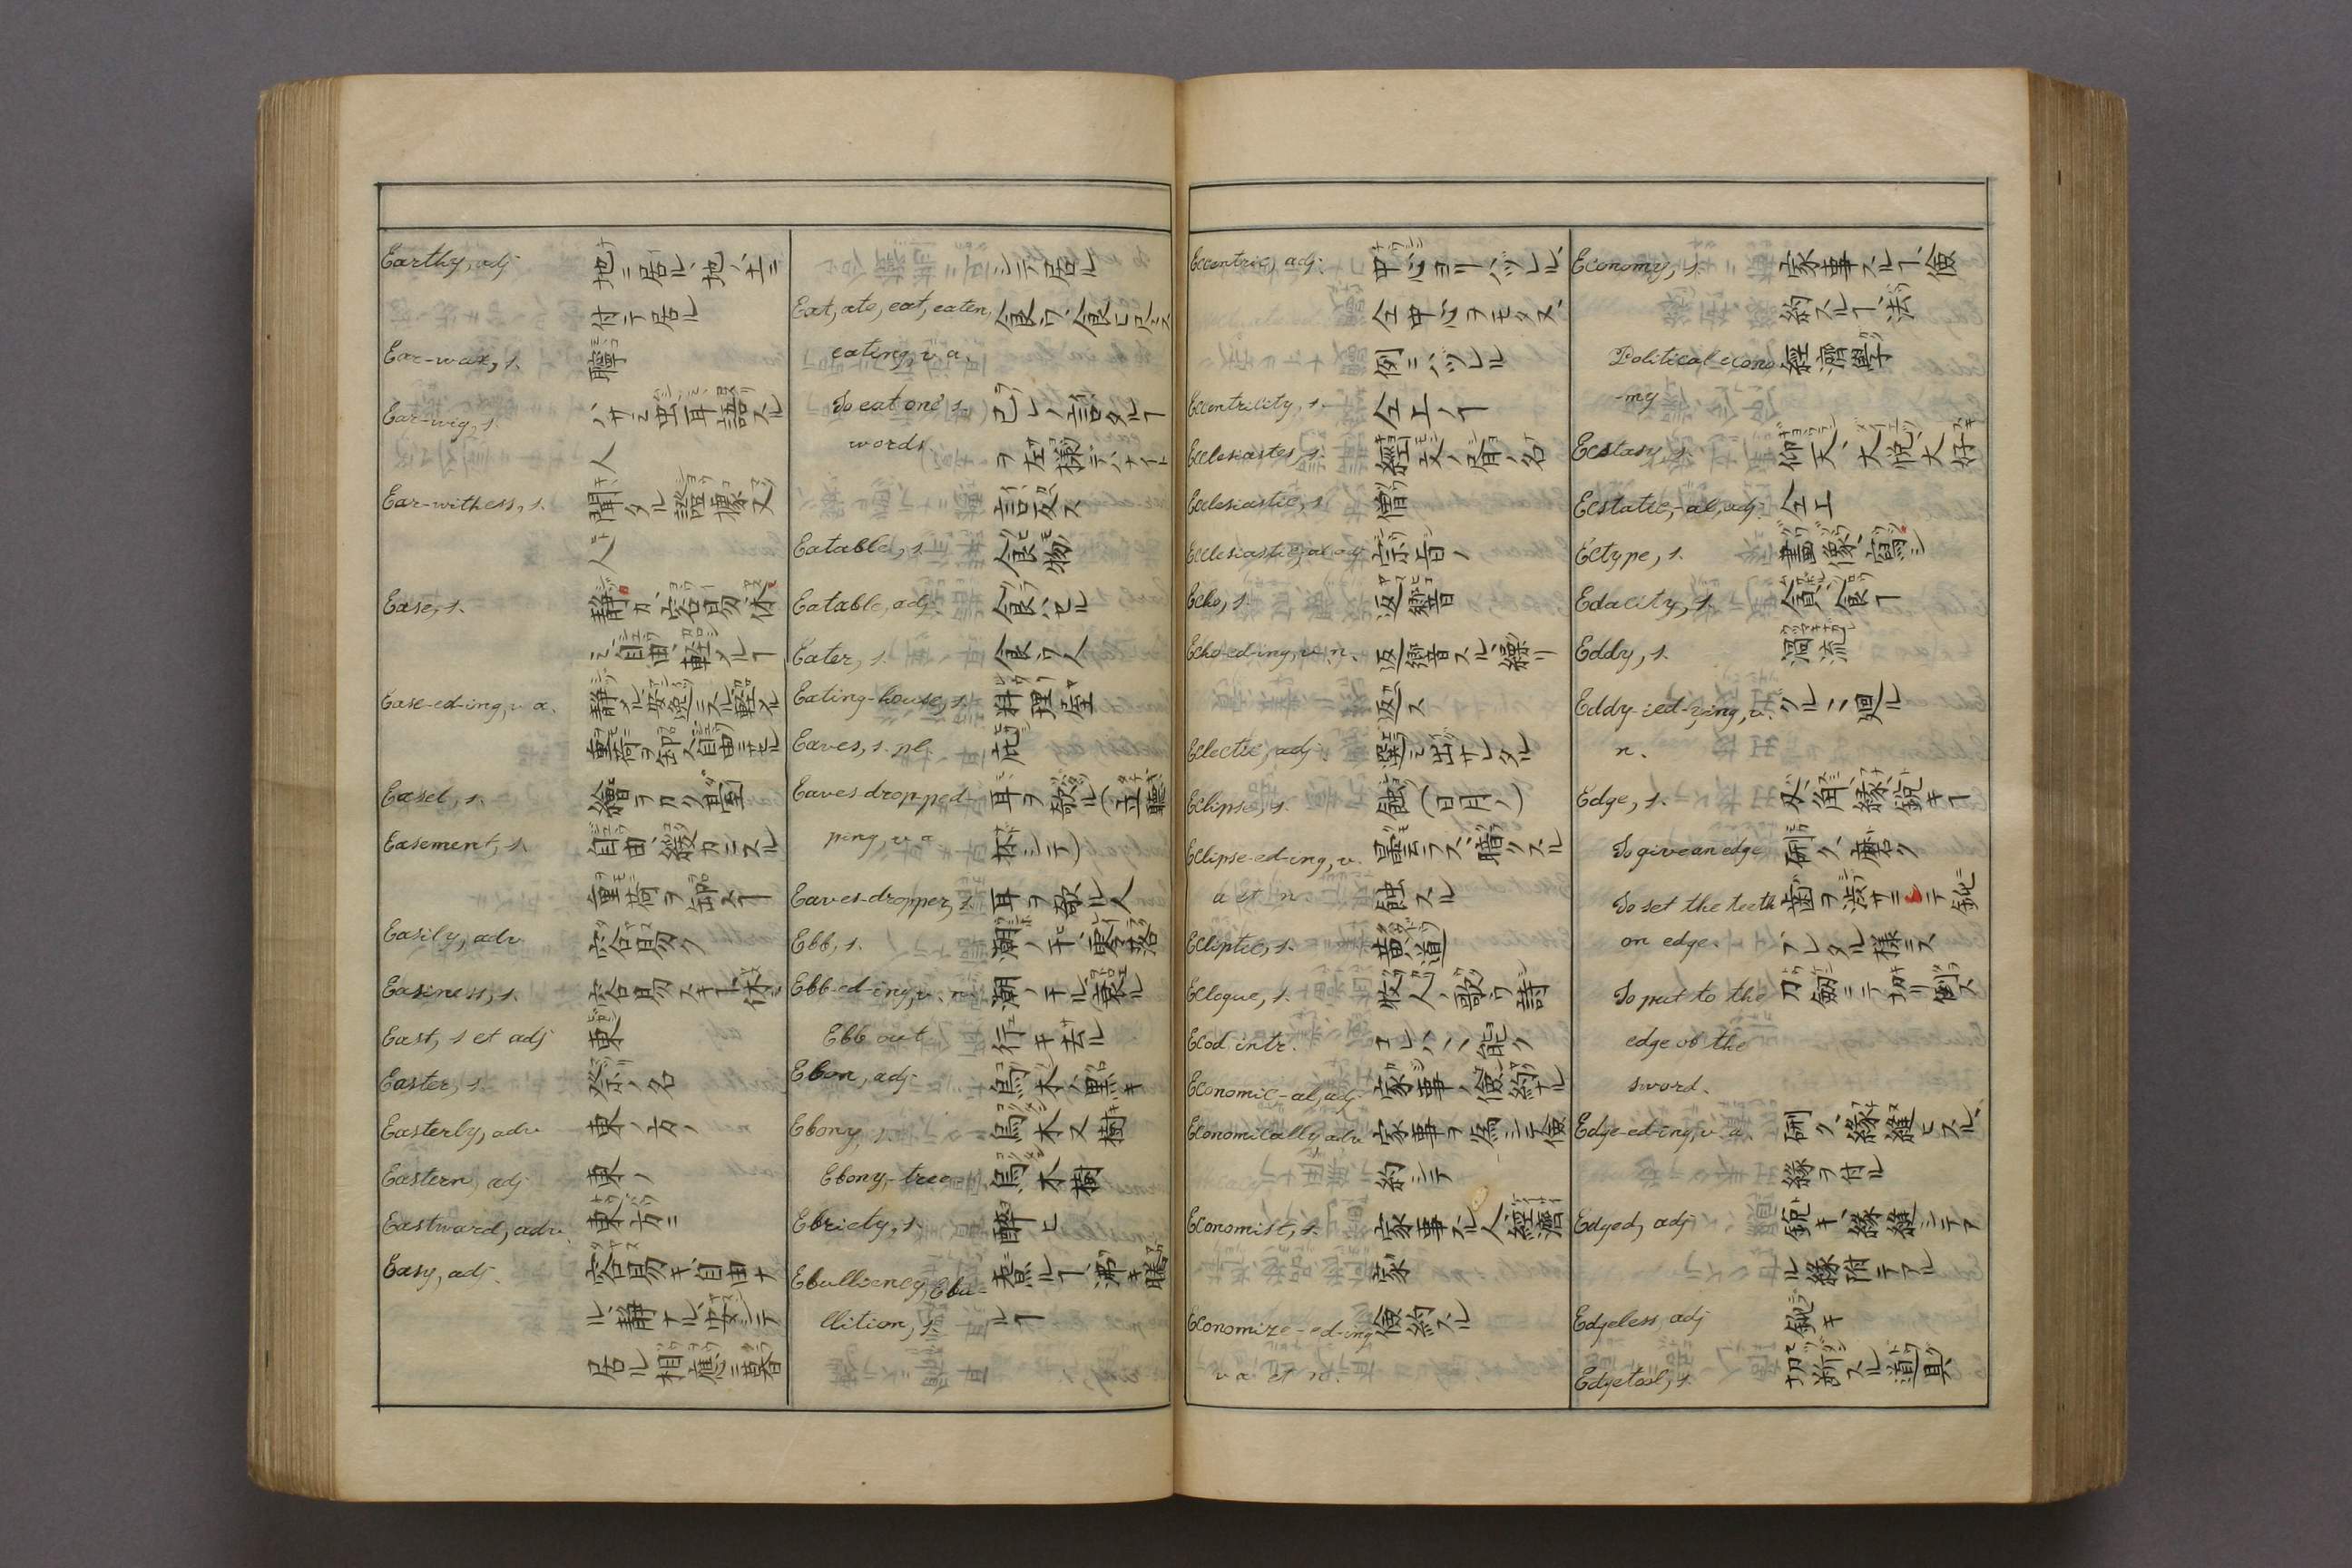 Earthy, adj. 地ニ居ル、地ノ土ニ
付テ居ル
Ear-wax, s.
Ear-wig, s. ハサミ虫、耳語スル
人
Ear-witness, s. 聞タル證據又
人
Ease, s. 静カ、容易、休
ミ、自由、軽メルヿ
Ease-ed-ing, v. a.
Easel, s. 繪ヲカク臺
Easement, s. 自由、緩カニスル
重荷ヲ卸スヿ
Easily, adv. 容易ク
Easiness, s.
East, s et adj 東
Easter, s. 祭ノ名
Easterly, adv 東ノ方ノ
Eastern, adj 東ノ
Eastward, adv. 東方ニ
Easy, adj. 容易キ、自由ナ
ル、静ナル、安シテ
居ル、相應ニ暮
シテ居ル
Eat, ate, eat, eaten,
eating, v a.
To eat one's 己レノ言タルヿ
words. ヲ左様デハナイト
言反ス
Eatable, s. 食物
Eatable, adj.
Eater, s. 食ウ人
Eating-house, s. 料理屋
Eaves, s. pl. 庇
Eaves drop-ped- 耳ヲ欹ル(立聽
ping, v. a 杯シテ)
Eaves-dropper, s. 耳ヲ欹ル人
Ebb, s. 潮ノ干、零落
Ebb-ed-ing, v. n. 潮ノ干ル、衰ル
Ebb out 行キ去ル
Ebon, adj. 烏木ノ、黒キ
Ebony, s. 烏木又樹
Ebony-tree 烏木樹
Ebriety, s. 醉ヒ
Ebulliency, Ebu- 煮ルヿ、沸キ騰
llition, s. ルヿ
Eccentric, adj. 中心ヨリハヅレル、
仝中心ヲモタヌ、
例ニハヅレル
Eccentricity, s. 仝上ノヿ
Ecclesiastes, s. 經文ノ書ノ名
Ecclesiastic, s. 僧
Ecclesiastic, al adj 宗旨ノ
Echo, s. 返響
Echo-ed-ing, v. n. 返響スル、繰リ
返ス
Eclectic, adj. 選ミ出サレタル
Eclipse, s. 蝕(日月ノ)
Eclipse-ed-ing, v. 曇ラス、暗クスル
a et n. 蝕スル
Ecliptic, s. 黄道
Eclogue, s. 牧人ノ歌ウ詩
Ecod intr.
Economic-al, adj. 家事ノ、儉約ナル
Economically adv 家事ヲ為シテ、儉
約シテ
Economist, s. 家事スル人、經濟
家
Economize-ed-ing 儉約スル
v a et n.
Economy, s. 家事スルヿ、儉
約スルヿ、法
Political econo 經濟學
-my
Ecstasy, s. 仰天、大悦、大好
Ecstatic,-al, adj. 仝上
Ectype, s. 畫像、寫シ
Edacity, s. 貪食ヿ
Eddy, s. 渦流
Eddy-ied-ying, v.
n.
Edge, s. 刃、角、縁、鋭キヿ
To give an edge 研ク、磨ク
To set the teeth
on edge.
To put to the 刀劔ニテ切リ倒ス
edge of the
sword.
Edge-ed-ing, v. a. 研ク、緣縫ヒスル、
緣ヲ付ル
Edged, adj 鋭キ、緣縫シテア
ル、緣附テアル
Edgeless, adj 鈍キ
Edgetool, s. 切断スル道具